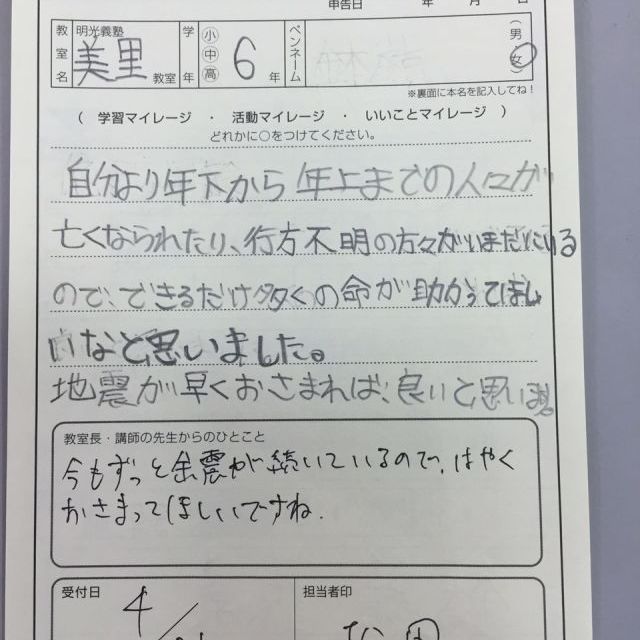 申告日 年 月 日
教室名 明光義塾 美里 教室 学年 小 中 高 6 年 ペンネーム (男・女)
※裏面に本名を記入してね！
( 学習マイレージ ・ 活動マイレージ ・ いいことマイレージ )
どれかに○をつけてください。
自分より年下から年上までの人々が
亡くなられたり、行方不明の方々がいまだにいる
ので、できるだけ多くの命が助かってほし
いなと思いました。
地震が早くおさまれば、良いと思います。
教室長・講師の先生からのひとこと
今もずっと余震が続いているので、はやく
おさまってほしいですね.
受付日 4/
担当者印